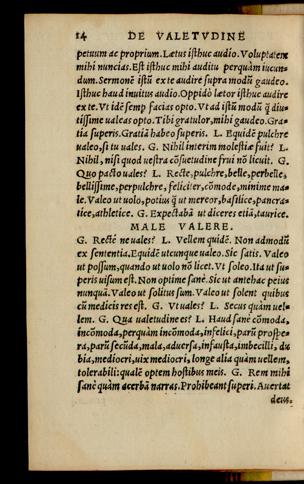 14 DE VALETVDINE
petuum ac proprium. Lætus isthuc audio. Voluptatem
mihi nuncias. Est isthuc mihi auditu perquàm iucun-
dum. Sermonē istū ex te audire supra modū gaudeo.
Isthuc haud inuitus audio. Oppidò lætor isthuc audire
ex te. Vt idē semp facias opto. Vt ad istū modū q̄ diu-
tissime valeas opto. Tibi gratulor, mihi gaudeo. Gra-
tia superis. Gratiā habeo superis. L. Equidē pulchre
valeo, si tu vales. G. Nihil interim molestiæ fuit? L.
Nihil, nisi quod vestra cōsuetudine frui nō licuit. G.
Quo pacto vales? L. Recte, pulchre, belle, perbelle,
bellissime, perpulchre, feliciter, cōmode, minime ma-
le. Valeo ut uolo, potius q̄ ut mereor, basilice, pancra-
tice, athletice. G. Expectabā ut diceres etiā, taurice.
MALE VALERE.
G. Rectē ne uales? L. Vellem quidē. Non admodū
ex sententia. Equidē utcunque valeo. Sic satis. Valeo
ut possum, quando ut uolo nō licet. Vt soleo. Ita ut su-
peris uisum est. Non optime sanè. Sic ut antehac peius
nunquā. Valeo ut solitus sum. Valeo ut solent quibus
cū medicis res est. G. Vt vales? L. Secus quàm uel-
lem. G. Qua ualetudine es? L. Haud sanè cōmoda,
incōmoda, perquàm incōmoda, infelici, parū prospe-
ra, parū secūda, mala, aduersa, infausta, imbecilli, du
bia, mediocri, uix mediocri, longe alia quàm uellem,
tolerabili: qualē optem hostibus meis. G. Rem mihi
sanè quàm acerbā narras. Prohibeant superi. Auertat
deus.